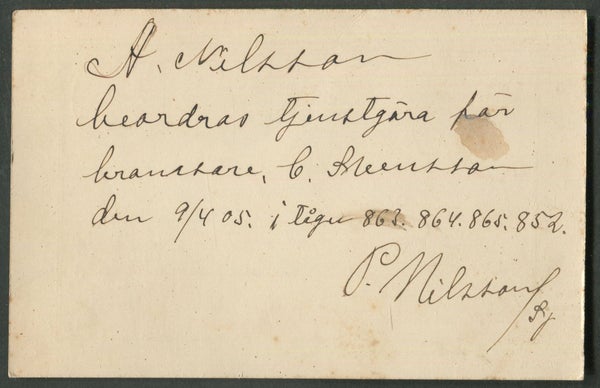 A. Nilsson
beordras tjenstgöra för
bromsare, C. Svensson
den 9/4 05. i tågen 863. 864. 865. 852.
P. Nilsson